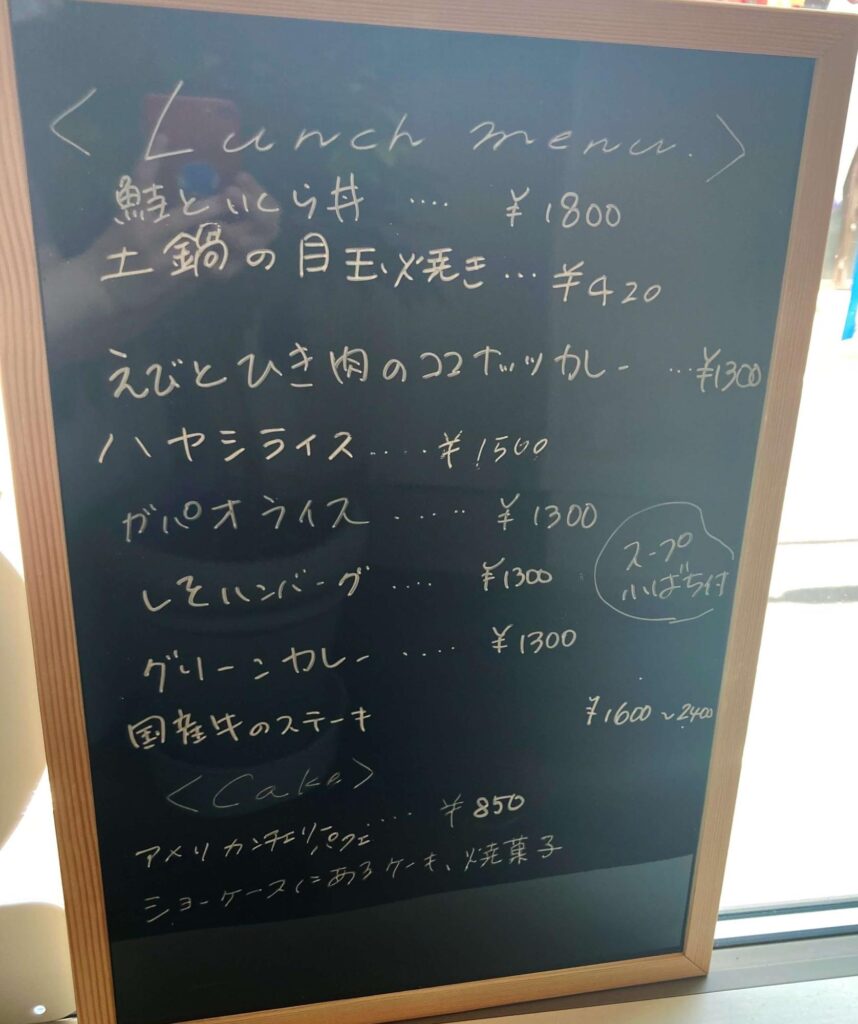 < Lunch menu. >
鮭といくら丼 .... ¥1800
土鍋の目玉焼き... ¥420
えびとひき肉のココナッツカレー ...¥1300
ハヤシライス..... ¥1500
ガパオライス ..... ¥1300
しそハンバーグ .... ¥1300
スープ
小ばち付
グリーンカレー ..... ¥1300
国産牛のステーキ ¥1600~2400
<Cake>
アメリカンチェリーパフェ ..... ¥850
ショーケースにあるケーキ、焼菓子